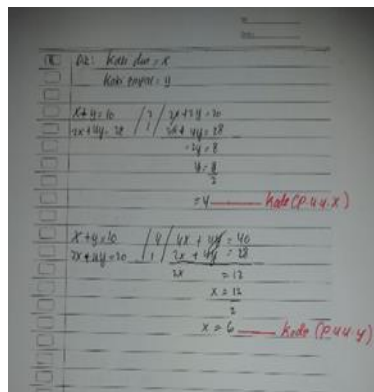 Dik: Kaki dua = x
Kaki empat = y
x+y=10 | 2 | 2x+2y=20
2x+4y=28 | 1 | 2x+4y=28
-2y=8
y=8
2
=4 kode (P.4.4.x)
x+y=10 | 4 | 4x+4y=40
2x+4y=20 | 1 | 2x+4y=28
2x =12
x=12
2
x=6 kode (P.4.4 y)